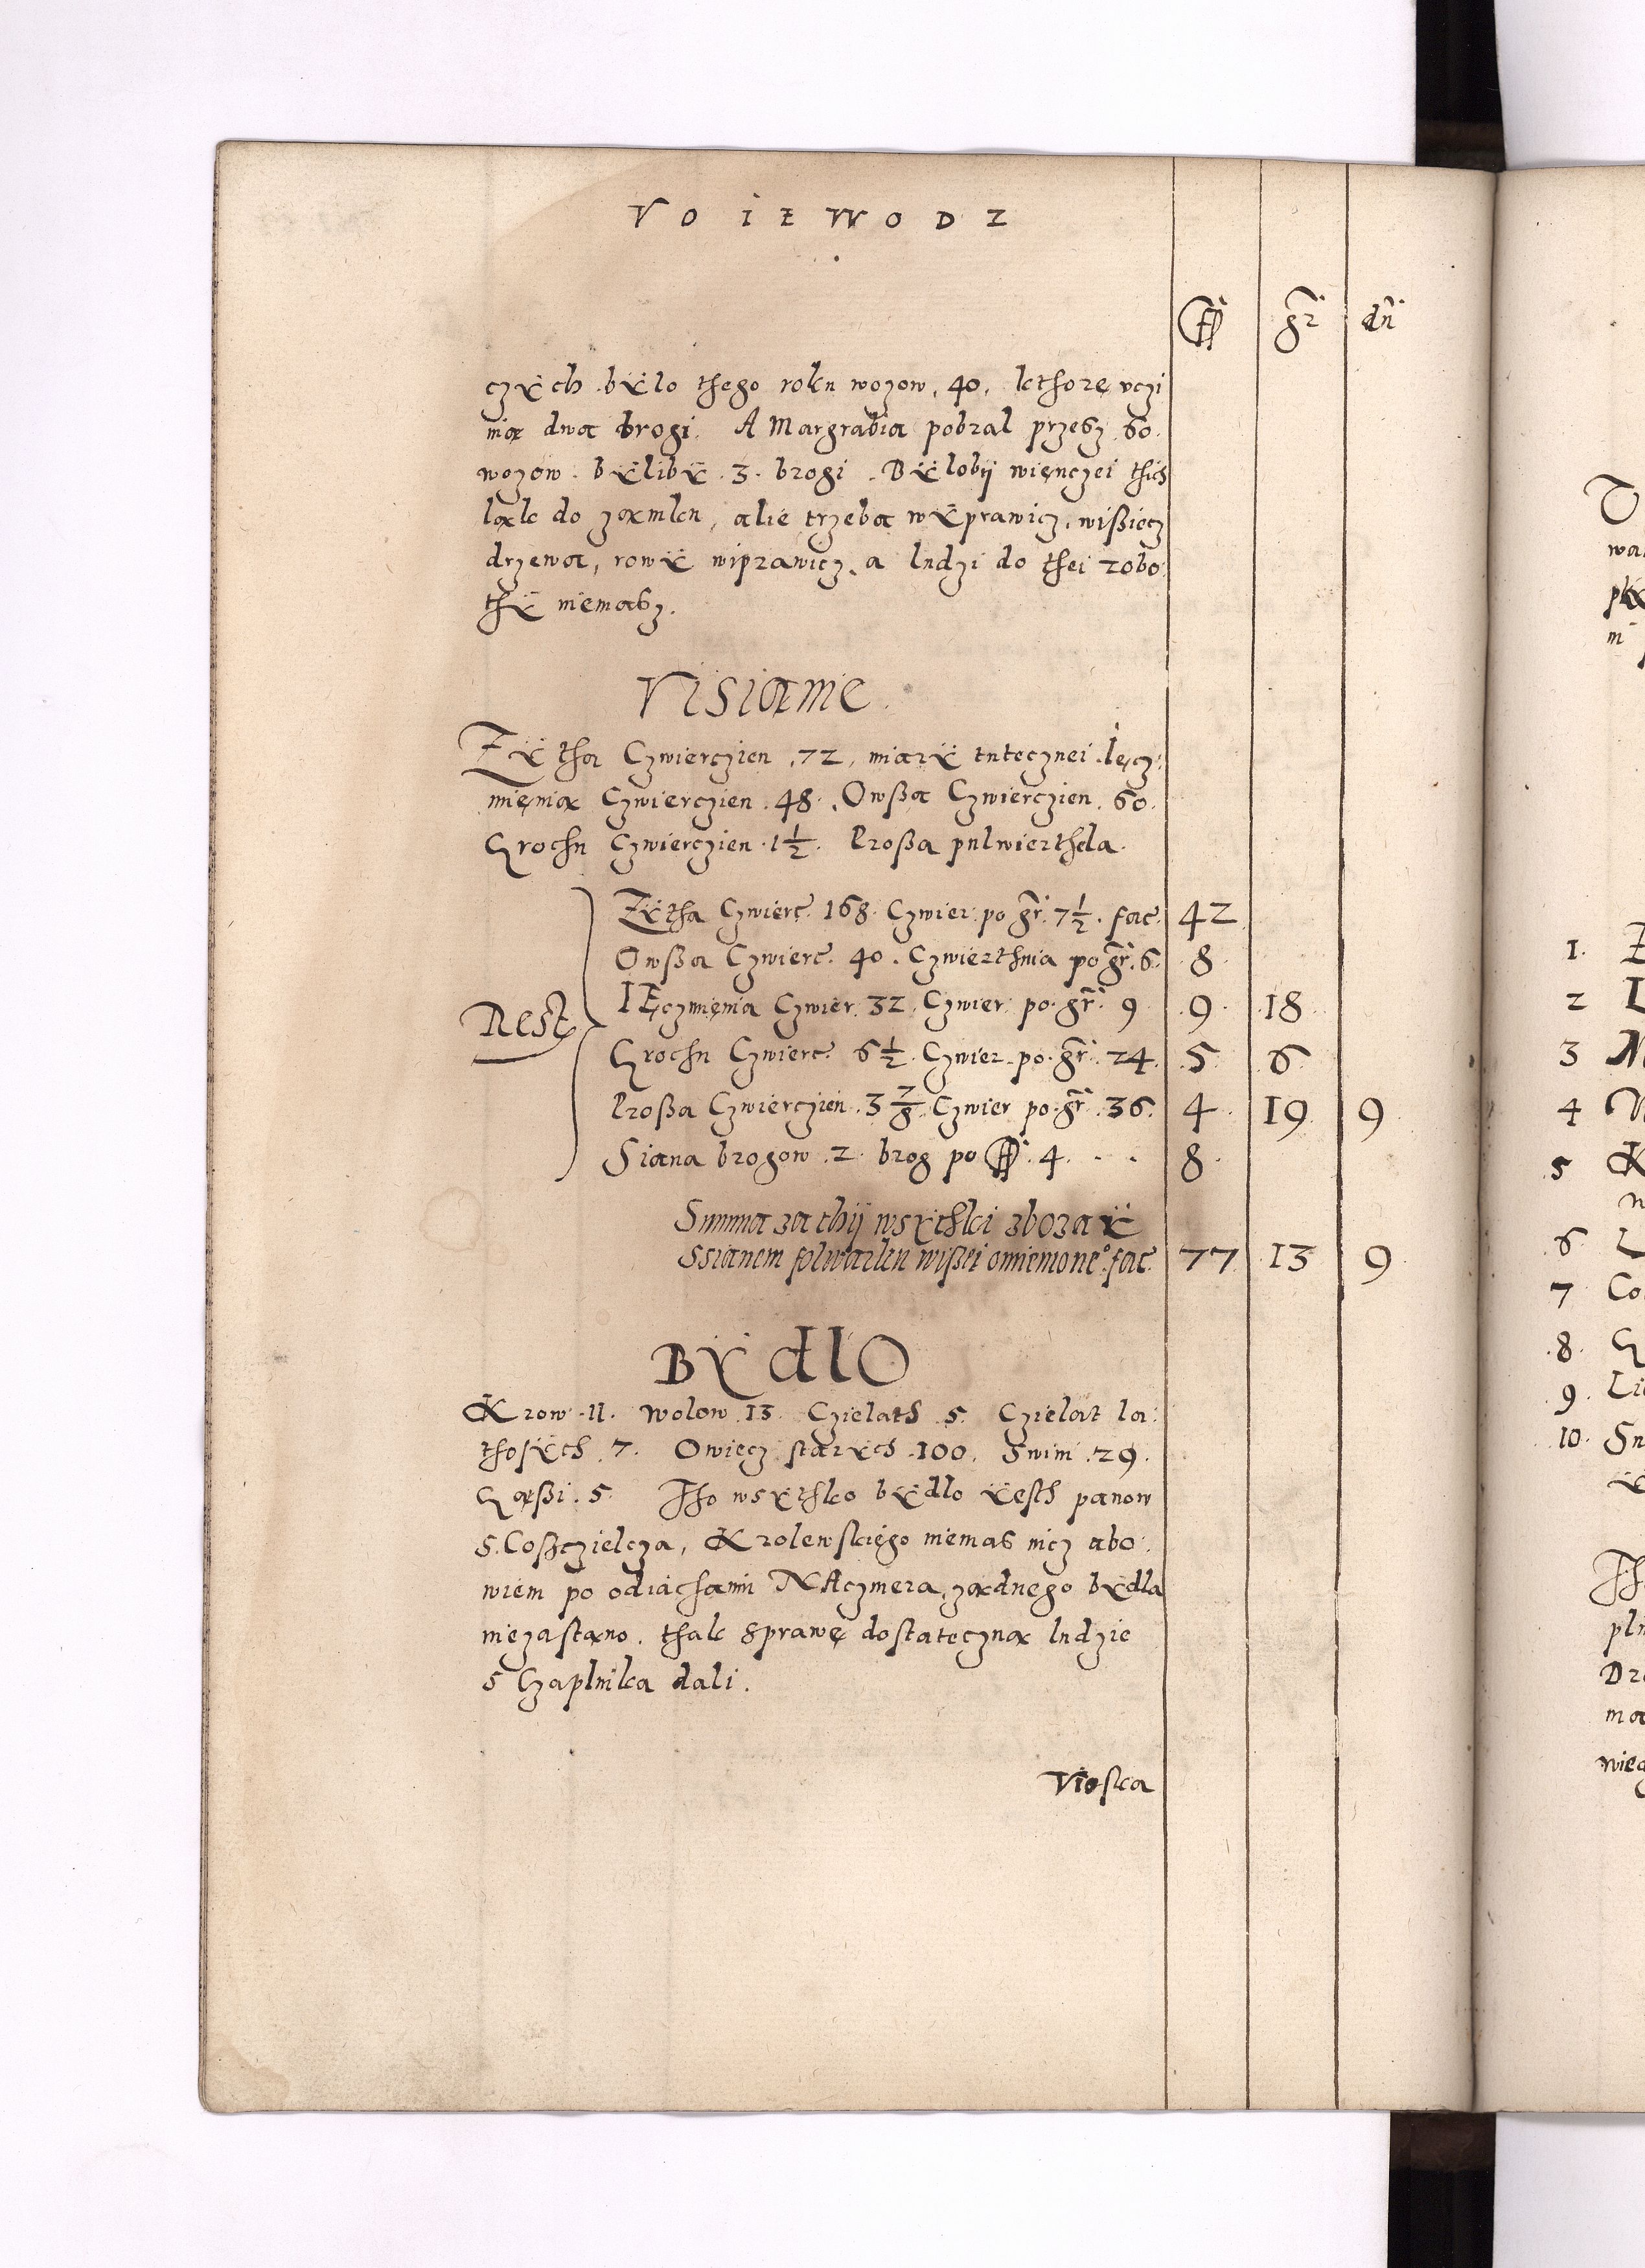 VOIEWODZ
fl gr dn
czÿch bÿlo thego roku wozow. 40. kthorę vczi
nią dwa brogi. A Margrabia pobral przesz 60.
wozow. bÿlibÿ 3. brogi. Bÿlobÿ więnczei thich
ląk do zamku, alie trzeba wÿprawicz, wißiecz
drzewa, rowÿ wiprawicz, a ludzi do thei robo
thÿ niemasz.
Visiane
Zÿtha Czwierczien .72, miarÿ tuteczneі .Ięcz:
mięnia Czwierczien .48. Owßa Czwierczien .60.
Grochu Czwierczien .1½. Proßa pulwierthela.
Rest
Zÿtha Czwierc. 168. Czwier. po gr. 7½. fac. 42
Owßa Czwierc. 40. Czwierthnia po gr. 6. 8
IĘczmięnia Czwier. 32. Czwier. po. gr. 9 9 18
Grochu Czwierc. 6½. Czwier. po. gr. 24. 5 6
Proßa Czwierczien .3 7/8. Czwier po. gr. 36. 4 19 9
Siana brogow .2. brog po fl. 4. 8
Summa za thÿ wsÿthki zboza ÿ
Ssianem folwarku wißei omienione°. fac. 77 13 9
BYdlO
Krow .11. Wolow .13. Czielath .5. Czielat la:
thosÿch .7. Owiecz starÿch .100. Swini .29.
Gąßi .5. Tho wsÿthko bÿdlo ÿesth panow
S. Coßczielcza, Krolewskiego niemas nicz abo:
wiem po odiachaniu NAczmera, zadnego bÿdla
niezastąno. thak sprawę dostateczną ludzie
S Czaplinka dali.
Vioska
1.
2
3
4
5
6
7 Co
8
9.
10.
wa
m
pln
ma